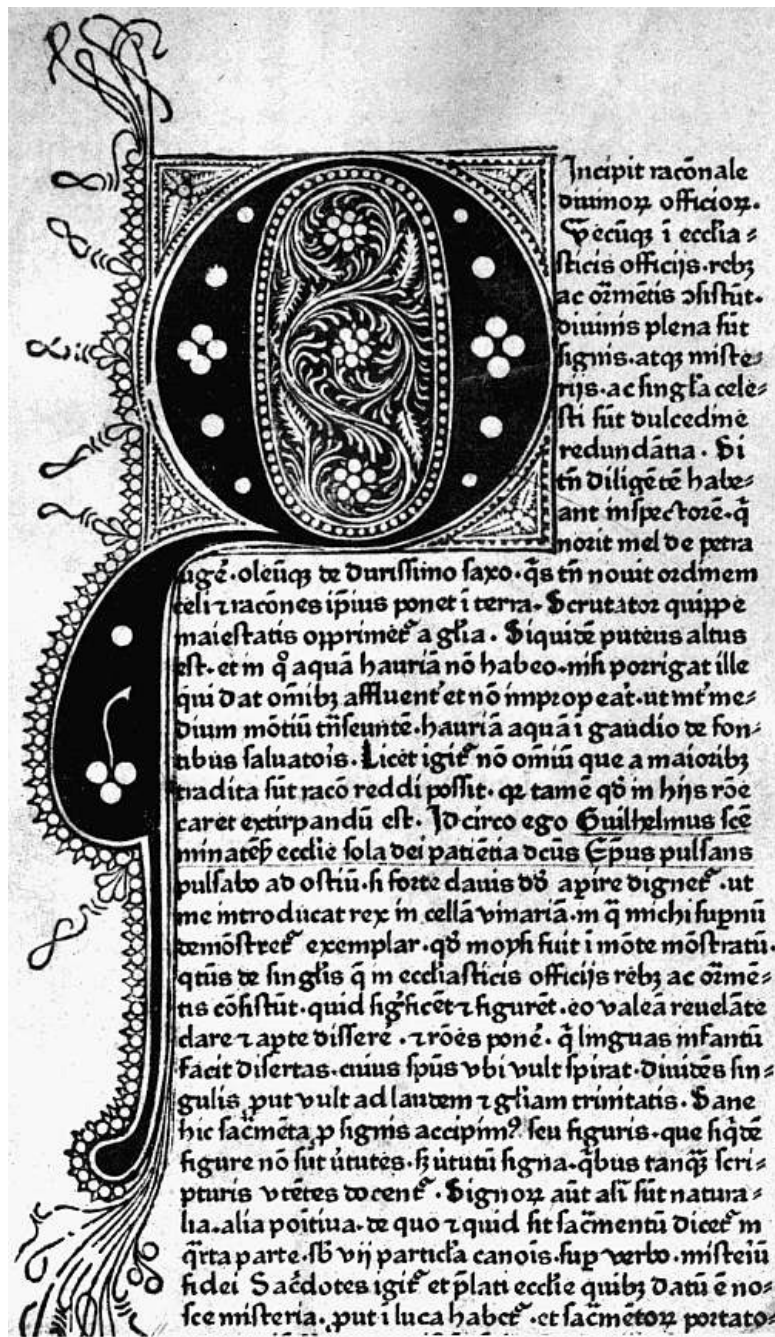 Incipit racōnale
diuinoꝝ officioꝝ.
Q̄ecūqꝫ ī eccl̄ia⸗
sticis officijs·rebꝫ
ac or̄mētis ↄsistūt·
diuinis plena sūt
signis·atqꝫ miste⸗
rijs·ac singl̄a cele⸗
sti sūt dulcedine
redundātia. Si
tn̄ diligētē habe⸗
ant inspectorē·q̄
norit mel de petra
sugē·oleūqꝫ de durissimo saxo·q̄s tn̄ nouit ordinem
celi ⁊ racōnes ip̄ius ponet ī terra. Scrutator quippe
maiestatis opprimet᷑ a gl̄ia. Siquidē puteus altus
est·et in q̊ aquā hauriā nō habeo·nisi porrigat ille
qui dat om̄ibꝫ affluent᷑ et nō improperat·ut mt᷑ me⸗
dium mōtiū tn̄seuntē·hauriā aquā ī gaudio de fon⸗
tibus saluatoīs. Licet igit᷑ nō om̄iū que a maioribꝫ
tradita sūt racō reddi possit. qꝛ tamē qd̄ in hijs rōe
caret extirpandū est. Idcirco ego Guilhelmus scē
minatēn̄ ecclie sola dei patiētia dcūs Ep̄us pulsans
pulsabo ad ostiū·si forte clauis dd̄ apire dignet᷑·ut
me introducat rex in cellā vinariā·in q̄ michi sup̄nū
demōstret᷑ exemplar·qd̄ moysi fuit ī mōte mōstratū·
qtūs de singl̄is q̄ in eccl̄iasticis officijs rebꝫ ac or̄mē⸗
tis cōsistūt·quid sig̊ficēt ⁊ figurēt·eo valeā reuelāte
clare ⁊ apte disserē·⁊ rōes ponē·q̄ linguas infantū
facit disertas·cuius sp̄us vbi vult spirat·diuidēs sin⸗
gulis put vult ad laudem ⁊ gl̄iam trinitatis. Sane
hic sac̄menta p signis accipimꝰ seu figuris·que siq̄dē
figure nō sūt ūtutes·sꝫ ūtutū signa·q̄bus tanqꝫ scri⸗
pturis vtētes docent᷑. Signoꝝ aūt al̄i sūt natura⸗
lia·alia poītiua·de quo ⁊ quid sit sac̄mentū dicet᷑ in
q̄rta parte·sb̄ vij particl̄a canoīs·sup verbo·misteīū
fidei Sac̄dotes igit᷑ et p̄lati ecclie quibꝫ datū ē no⸗
sce misteria·put ī luca habet᷑·et sac̄mētoꝝ portato⸗